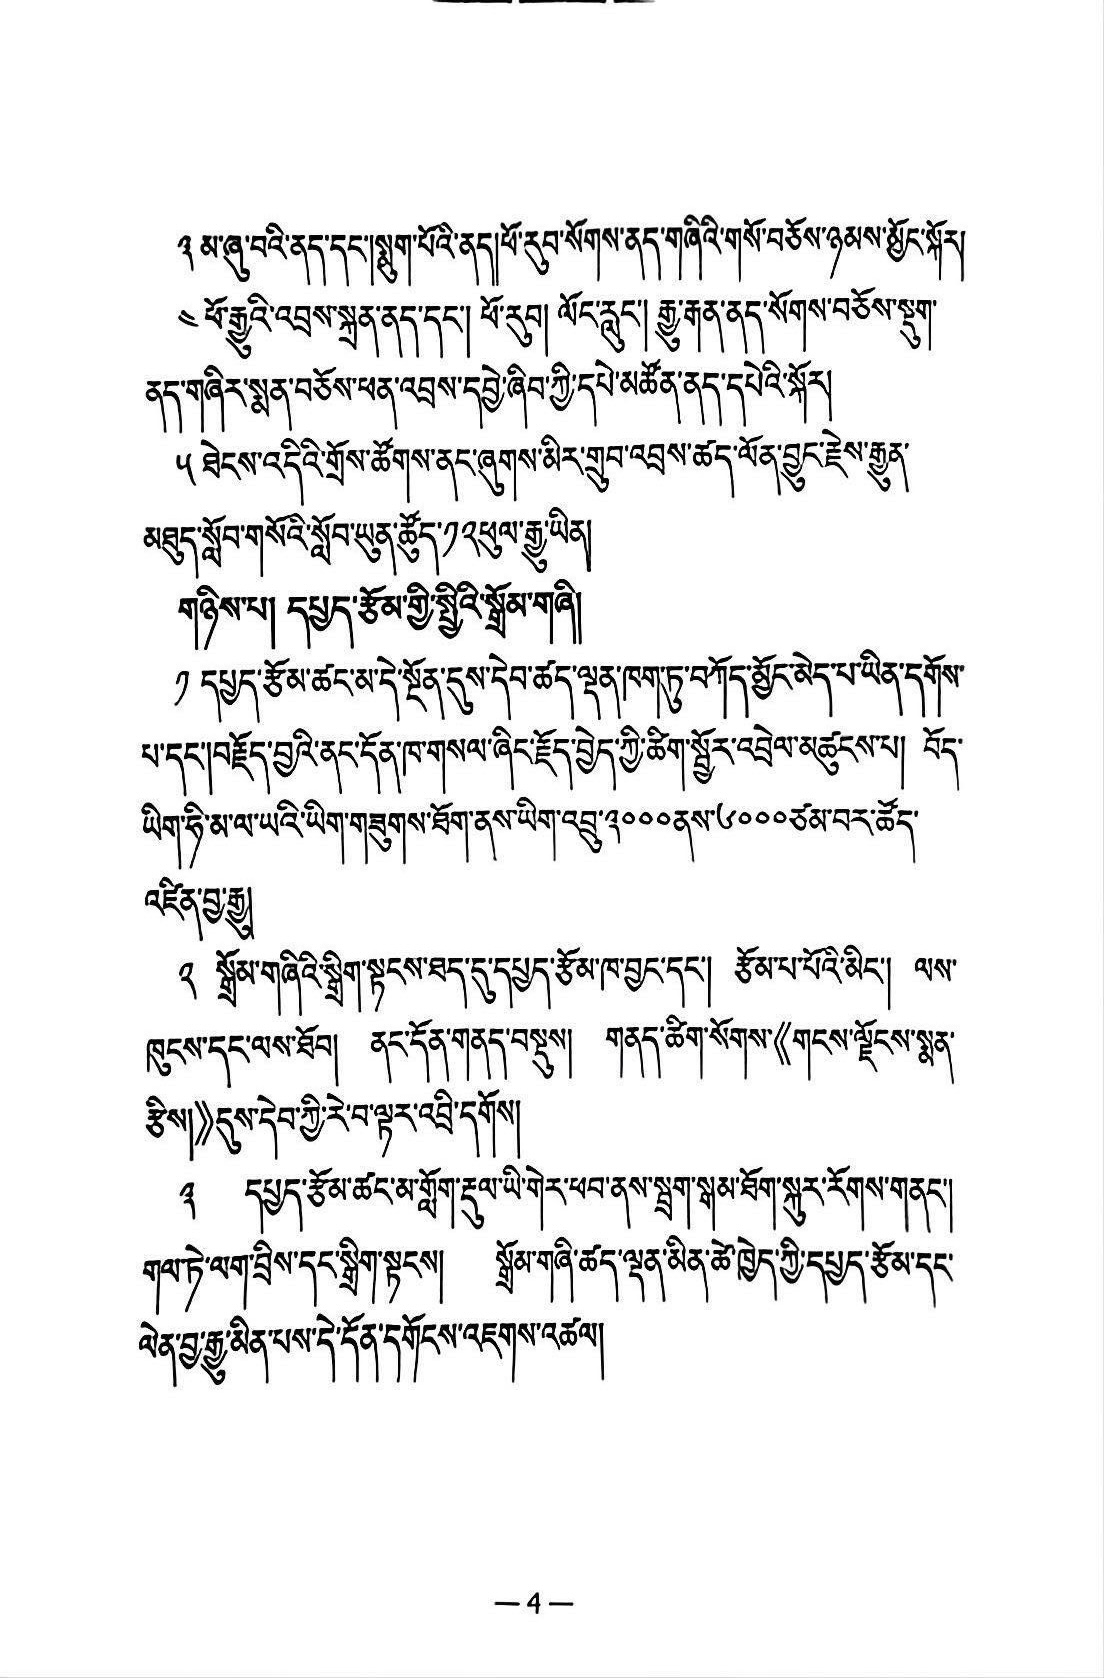 ༣ མ་ཞུ་བའི་ནད་དང་།སྨུག་པོའི་ནད།ཕོ་རུབ་སོགས་ནད་གཞིའི་གསོ་བཅོས་ཉམས་མྱོང་སྐོར།
༤ ཕོ་རྒྱུའི་འབྲས་སྐྲན་ནད་དང་། ཕོ་རུབ། ལོང་རླུང་། རྒྱུ་རྒན་ནད་སོགས་བཅོས་སྡུག་
ནད་གཞིར་སྨན་བཅོས་ཕན་འབྲས་དབྱེ་ཞིབ་ཀྱི་དཔེ་མཚོན་ནད་དཔེའི་སྐོར།
༥ ཐེངས་འདིའི་གྲོས་ཚོགས་ནང་ཞུགས་མིར་གྲུབ་འབྲས་ཚད་ལོན་བྱུང་རྗེས་རྒྱུན་
མཐུད་སློབ་གསོའི་སློབ་ཡུན་ཚོད་༡༢ཕུལ་རྒྱུ་ཡིན།
གཉིས་པ། དཔྱད་རྩོམ་གྱི་སྤྱིའི་སྒྲོམ་གཞི།
༡ དཔྱད་རྩོམ་ཚང་མ་དེ་སྔོན་དུས་དེབ་ཚད་ལྡན་ཁག་ཏུ་བཀོད་མྱོང་མེད་པ་ཡིན་དགོས་
པ་དང་།བརྗོད་བྱའི་ནང་དོན་ཁ་གསལ་ཞིང་རྗོད་བྱེད་ཀྱི་ཚིག་སྦྱོར་འབྲེལ་མཚུངས་པ། བོད་
ཡིག་ཧི་མ་ལ་ཡའི་ཡིག་གཟུགས་ཐོག་ནས་ཡིག་འབྲུ་༣༠༠༠ནས་༦༠༠༠ཙམ་བར་ཚོད་
འཛིན་བྱ་རྒྱུ།
༢ སྒྲོམ་གཞིའི་སྒྲིག་སྟངས་ཐད་དུ་དཔྱད་རྩོམ་ཁ་བྱང་དང་། རྩོམ་པ་པོའི་མིང་། ལས་
ཁུངས་དང་ལས་ཐོབ། ནང་དོན་གནད་བསྡུས། གནད་ཚིག་སོགས་《གངས་ལྗོངས་སྨན་
རྩིས།》དུས་དེབ་ཀྱི་རེ་བ་ལྟར་འབྲི་དགོས།
༣ དཔྱད་རྩོམ་ཚང་མ་གློག་རྡུལ་ཡི་གེར་ཕབ་ནས་སྦྲག་སྒམ་ཐོག་སྐུར་རོགས་གནང་།
གལ་ཏེ་ལག་བྲིས་དང་སྒྲིག་སྟངས། སྒྲོམ་གཞི་ཚད་ལྡན་མིན་ཚེ་ཁྱེད་ཀྱི་དཔྱད་རྩོམ་དང་
ལེན་བྱ་རྒྱུ་མིན་པས་དེ་དོན་དགོངས་འཇགས་འཚལ།
— 4 —